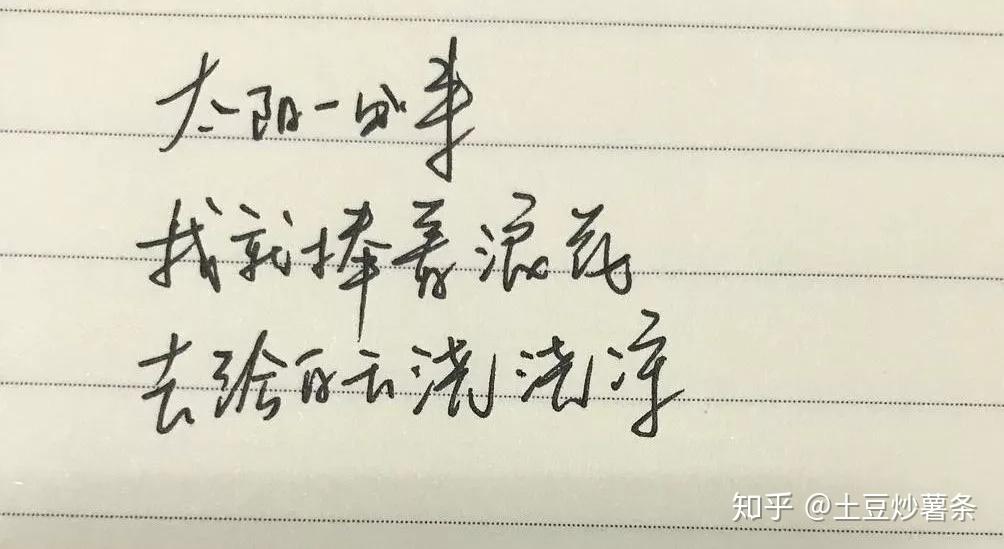 太阳一出来
我就捧着浪花
去给白云浇浇凉
知乎 @土豆炒薯条